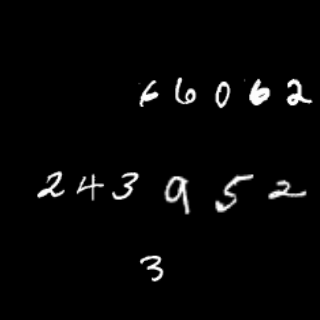 6 6 0 6 2
2 4 3 9 5 2
3